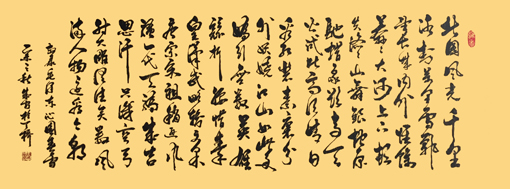 北国风光千里
冰封万里雪飘
望长城内外惟余
莽莽大河上下顿
失滔滔山舞银蛇原
驰蜡象欲与天公
试比高须晴日
看红装素裹分
外妖娆江山如此多
娇引无数英雄
竞折腰惜秦
皇汉武略输文采
唐宗宋祖稍逊风
骚一代天骄成吉
思汗只识弯弓
射大雕俱往矣数风
流人物还看今朝
毛泽东沁园春雪